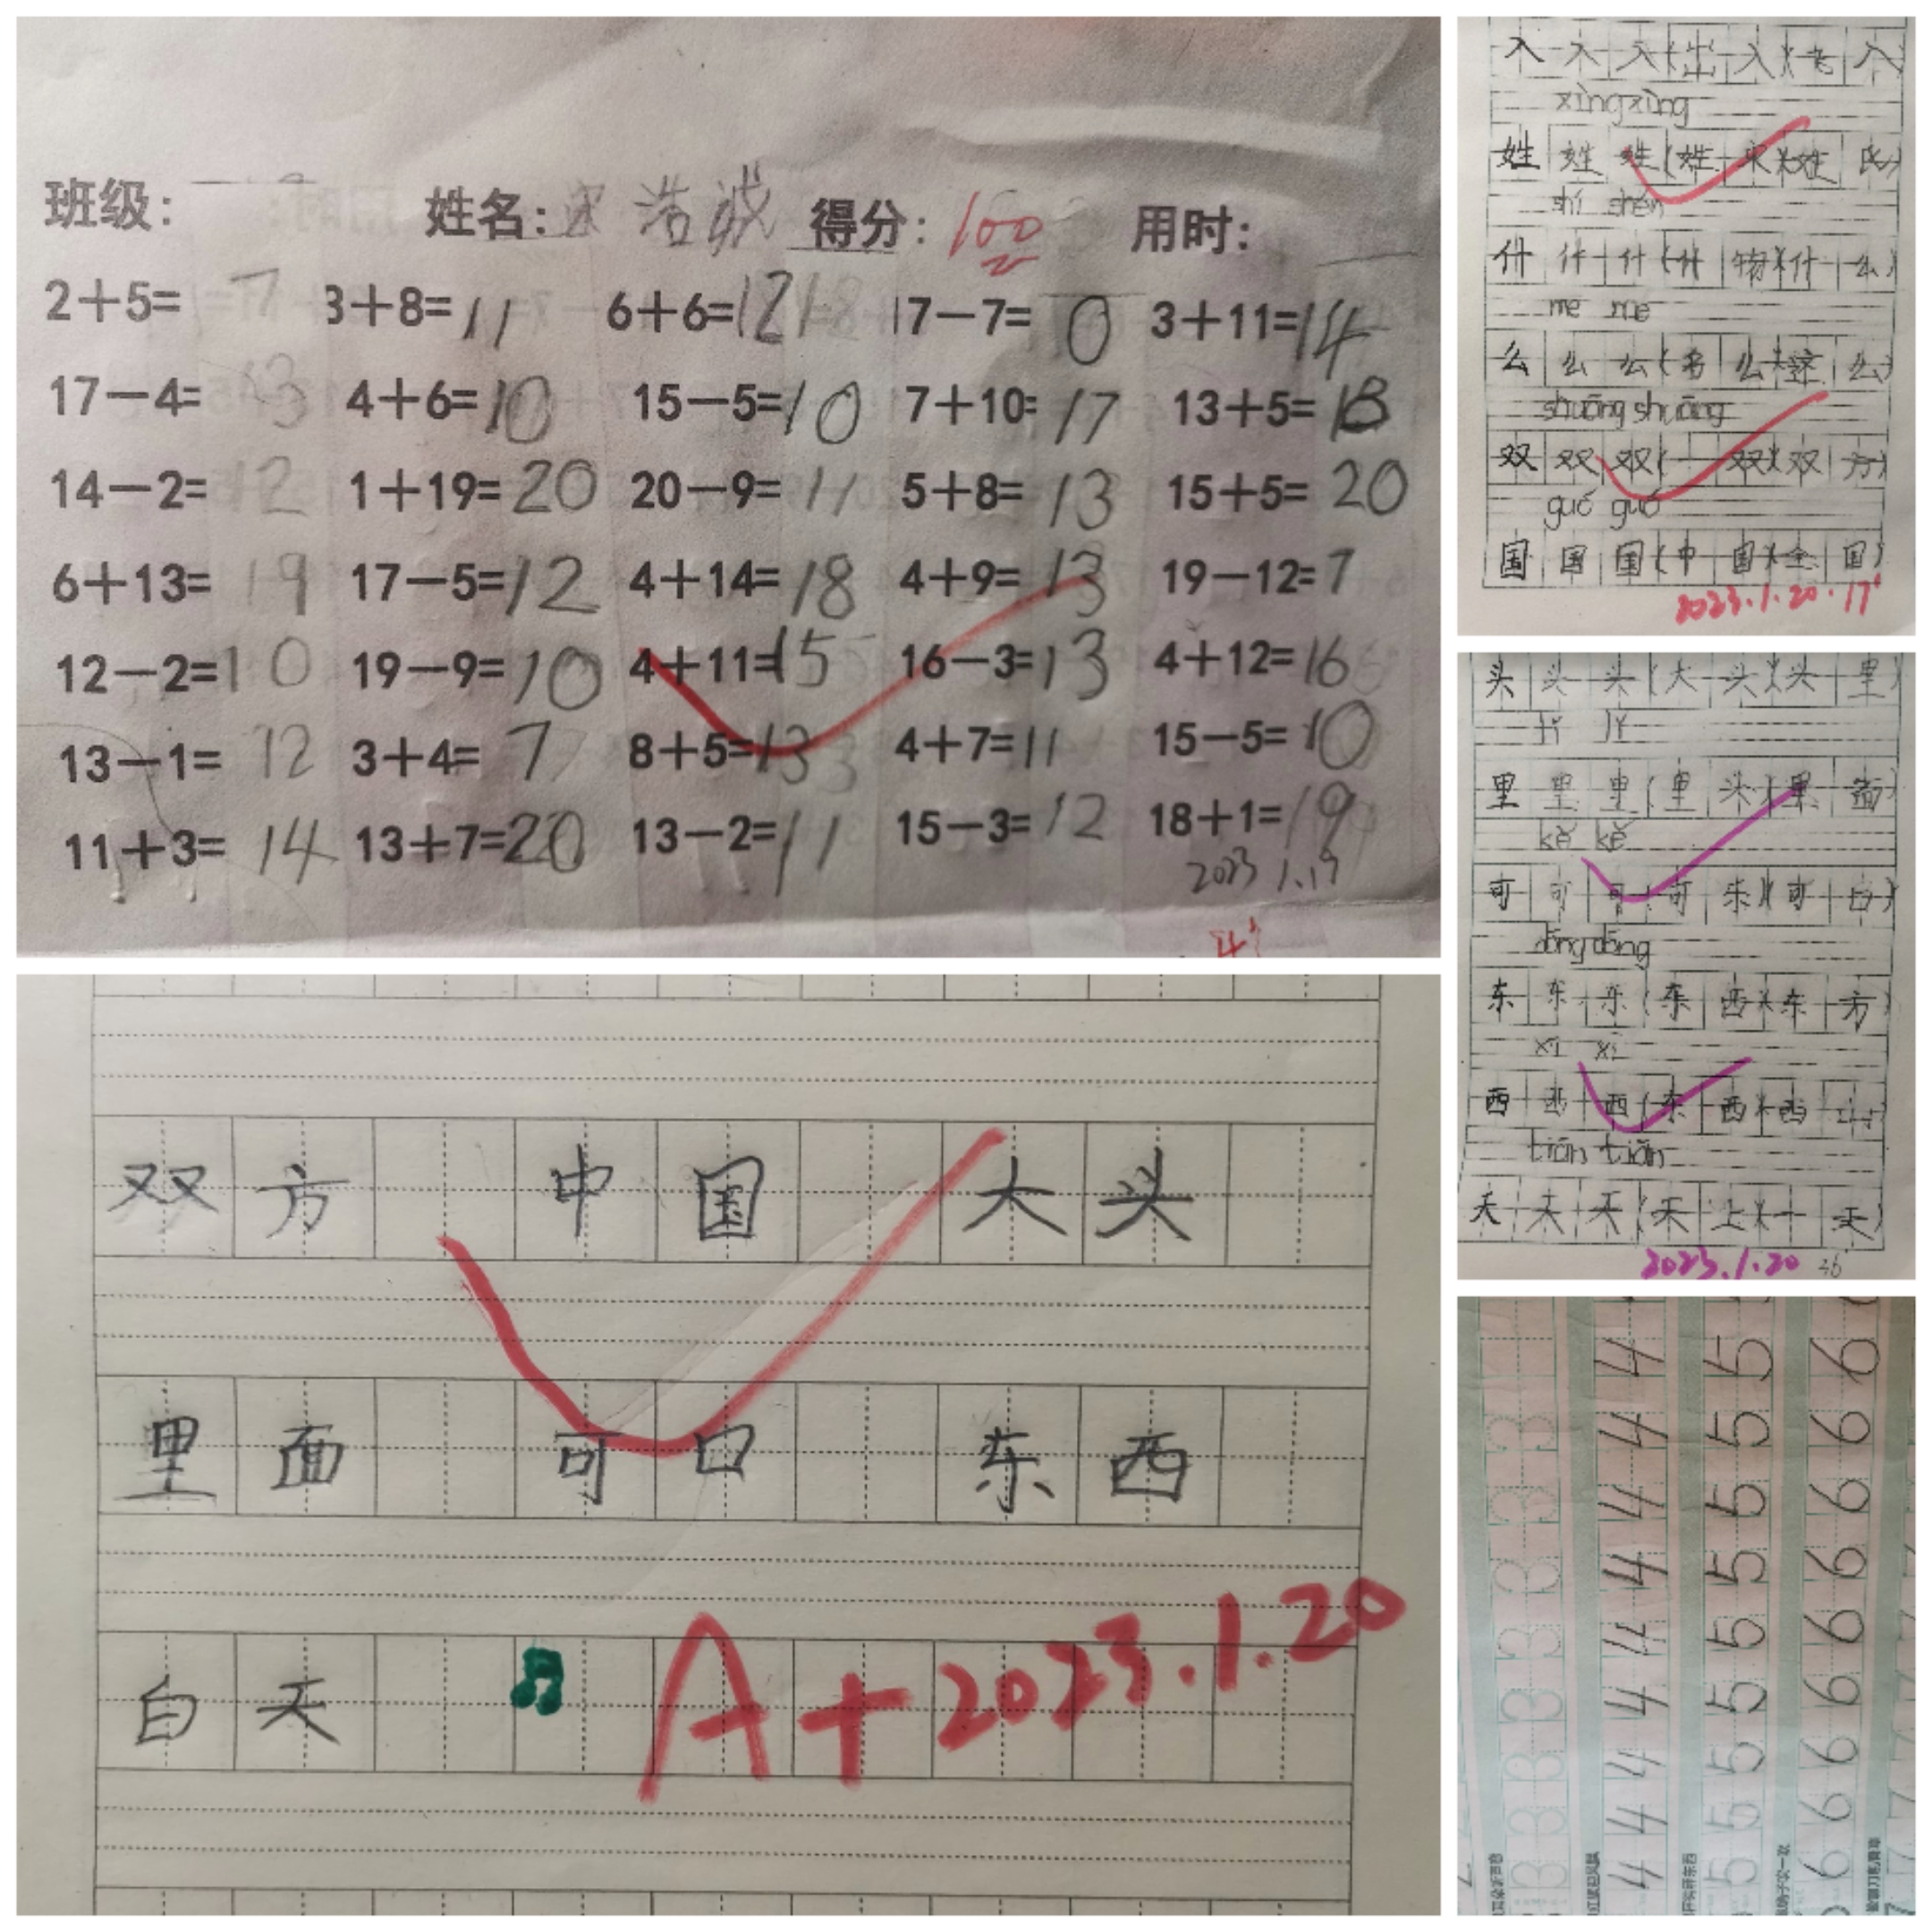 班级: 姓名: 宋浩诚 得分: 100 用时:
2+5= 7 3+8= 11 6+6= 12 17-7= 10 3+11= 14
17-4= 13 4+6= 10 15-5= 10 7+10= 17 13+5= 18
14-2= 12 1+19= 20 20-9= 11 5+8= 13 15+5= 20
6+13= 19 17-5= 12 4+14= 18 4+9= 13 19-12= 7
12-2= 10 19-9= 10 4+11= 15 16-3= 13 4+12= 16
13-1= 12 3+4= 7 8+5= 13 4+7= 11 15-5= 10
11+3= 14 13+7= 20 13-2= 11 15-3= 12 18+1= 19
2023 1.19
双方 中国 大头
里面 可口 东西
白天 A+ 2023.1.20
入 入 入(出入)(
xìng xìng
姓 姓 姓(姓宋)(姓氏)
shí shén
什 什 什(什物)(什么)
me me
么 么 么(多么)(这么)
shuāng shuāng
双 双 双(一双)(双方)
guó guó
国 国 国(中国)(全国)
2023.1.20.17'
头 头 头(大头)(头里)
lǐ lǐ
里 里 里(里头)(里面)
kě kě
可 可 可(可乐)(可口)
dōng dōng
东 东 东(东西)(东方)
xī xī
西 西 西(东西)(西山)
tiān tiān
天 天 天(天上)(一天)
2023.1.20 26
3 3 3 3 3 3 3 3
4 4 4 4 4 4 4 4
5 5 5 5 5 5 5 5
6 6 6 6 6 6 6 6